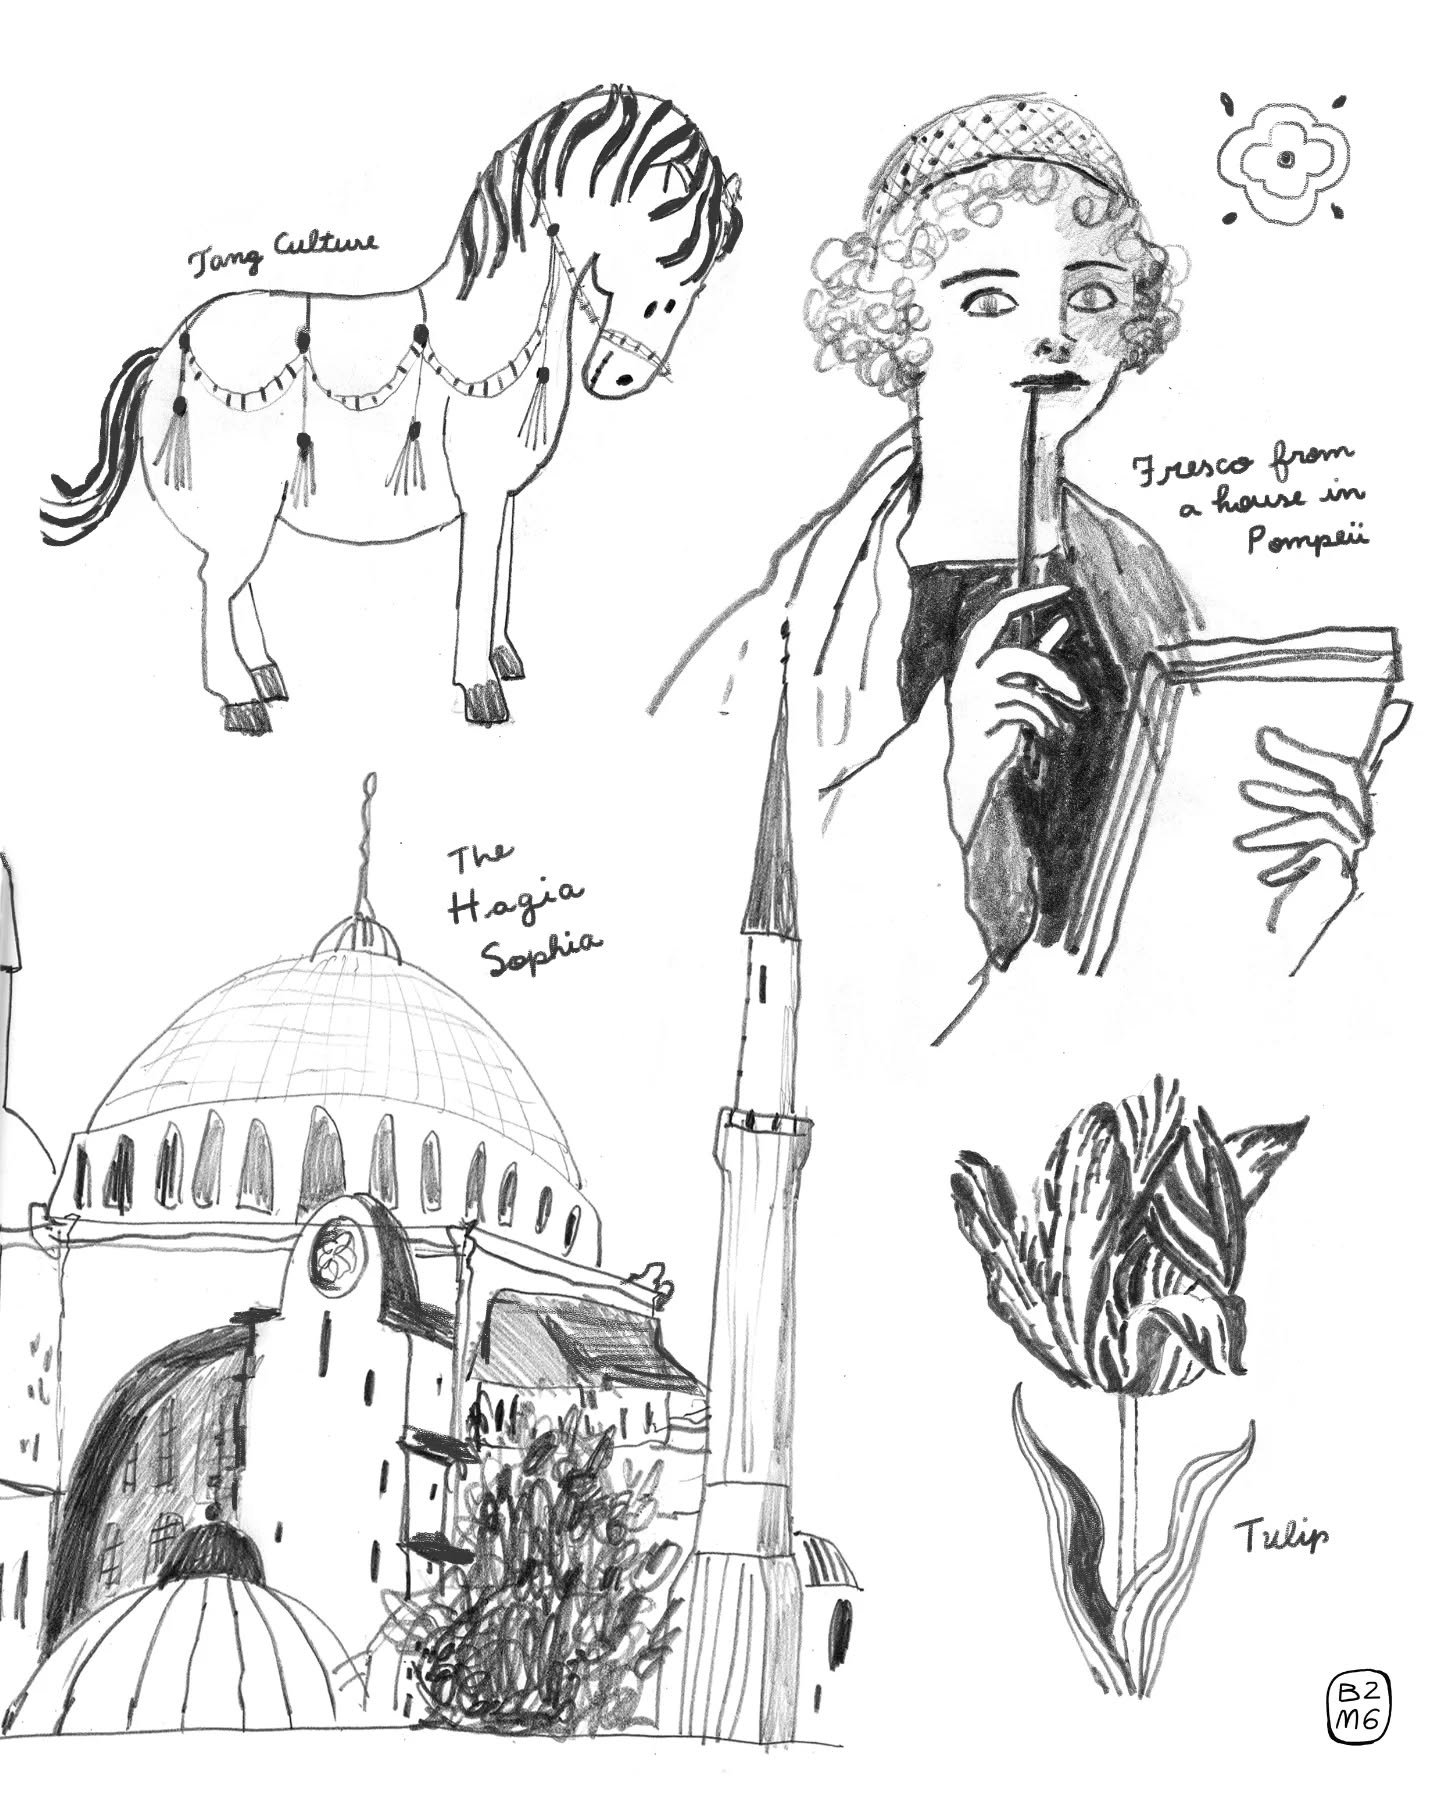 Tang Culture
Fresco from
a house in
Pompeii
The
Hagia
Sophia
Tulip
B2
M6